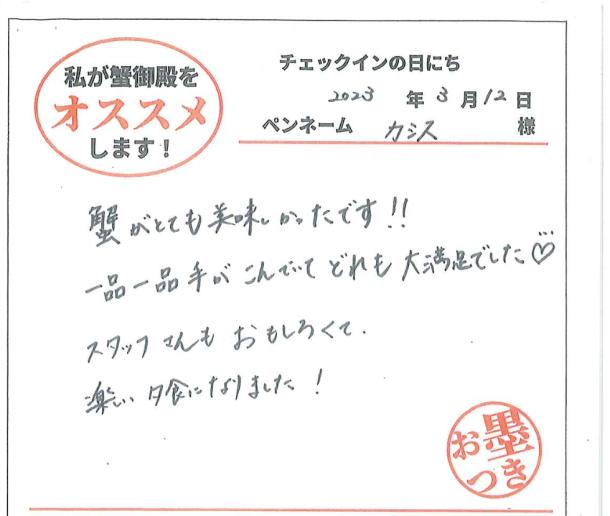 私が蟹御殿を
オススメ
します！
チェックインの日にち
2023 年 3 月 12 日
ペンネーム カシス 様
蟹がとても美味しかったです!!
一品一品手がこんでいてどれも大満足でした♡
スタッフさんもおもしろくて.
楽しい夕食になりました！
お墨
つき